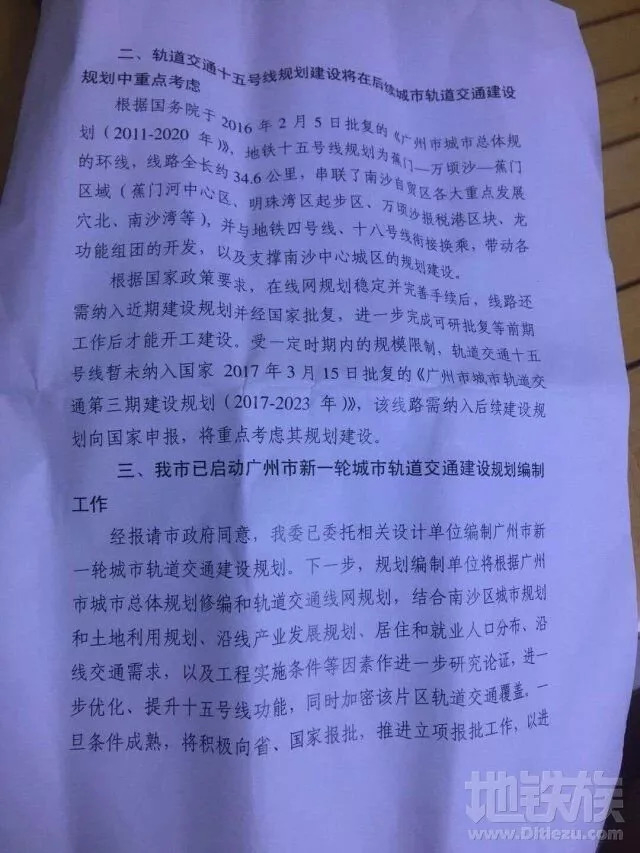 二、轨道交通十五号线规划建设将在后续城市轨道交通建设
规划中重点考虑
根据国务院于 2016 年 2 月 5 日批复的《广州市城市总体规
划（2011-2020 年）》，地铁十五号线规划为蕉门—万顷沙—蕉门
的环线，线路全长约 34.6 公里，串联了南沙自贸区各大重点发展
区域（蕉门河中心区、明珠湾区起步区、万顷沙报税港区块、龙
穴北、南沙湾等），并与地铁四号线、十八号线衔接换乘，带动各
功能组团的开发，以及支撑南沙中心城区的规划建设。
根据国家政策要求，在线网规划稳定并完善手续后，线路还
需纳入近期建设规划并经国家批复，进一步完成可研批复等前期
工作后才能开工建设。受一定时期内的规模限制，轨道交通十五
号线暂未纳入国家 2017 年 3 月 15 日批复的《广州市城市轨道交
通第三期建设规划（2017-2023 年）》，该线路需纳入后续建设规
划向国家申报，将重点考虑其规划建设。
三、我市已启动广州市新一轮城市轨道交通建设规划编制
工作
经报请市政府同意，我委已委托相关设计单位编制广州市新
一轮城市轨道交通建设规划。下一步，规划编制单位将根据广州
市城市总体规划修编和轨道交通线网规划，结合南沙区城市规划
和土地利用规划、沿线产业发展规划、居住和就业人口分布、沿
线交通需求，以及工程实施条件等因素作进一步研究论证，进一
步优化、提升十五号线功能，同时加密该片区轨道交通覆盖。一
旦条件成熟，将积极向省、国家报批，推进立项报批工作，以进
地铁族
www.Ditiezu.com